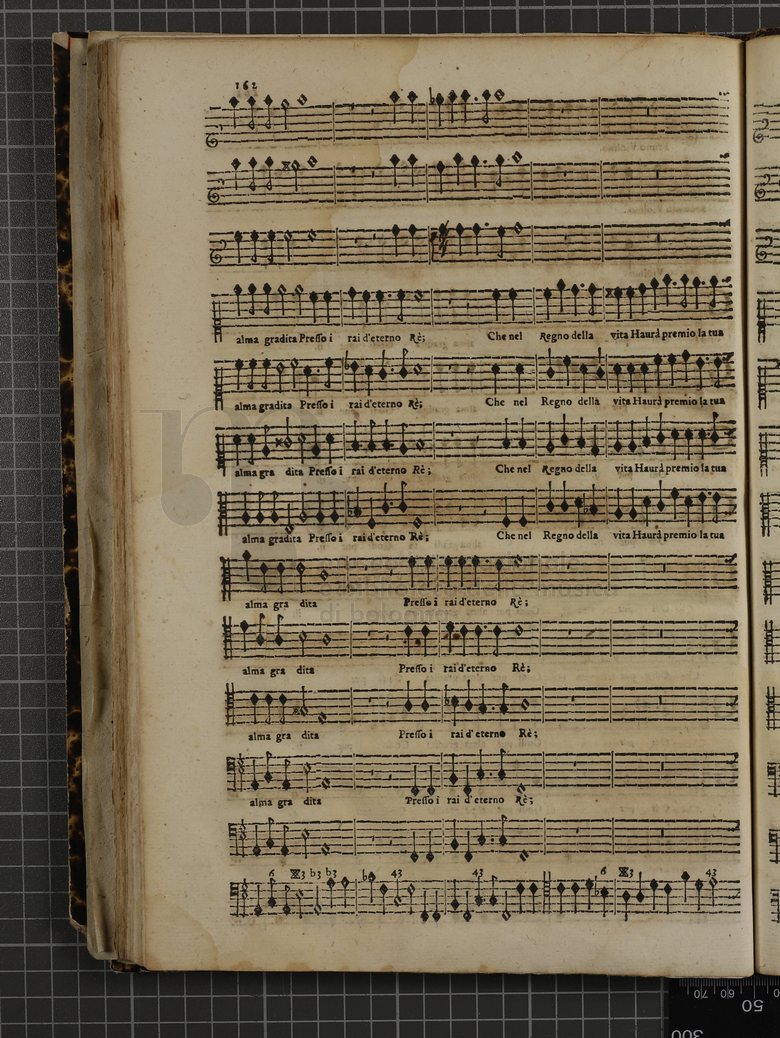 162
alma gradita Presso i rai d'eterno Rè; Che nel Regno della vita Haurà premio la tua
alma gradita Presso i rai d'eterno Rè; Che nel Regno della vita Haurà premio la tua
alma gra dita Presso i rai d'eterno Rè; Che nel Regno della vita Haurà premio la tua
alma gradita Presso i rai d'eterno Rè; Che nel Regno della vita Haurà premio la tua
alma gra dita Presso i rai d'eterno Rè;
alma gra dita Presso i rai d'eterno Rè;
alma gra dita Presso i rai d'eterno Rè;
alma gra dita Presso i rai d'eterno Rè;
6 3 b3 b3 43 43 6 3 43
70 60
50